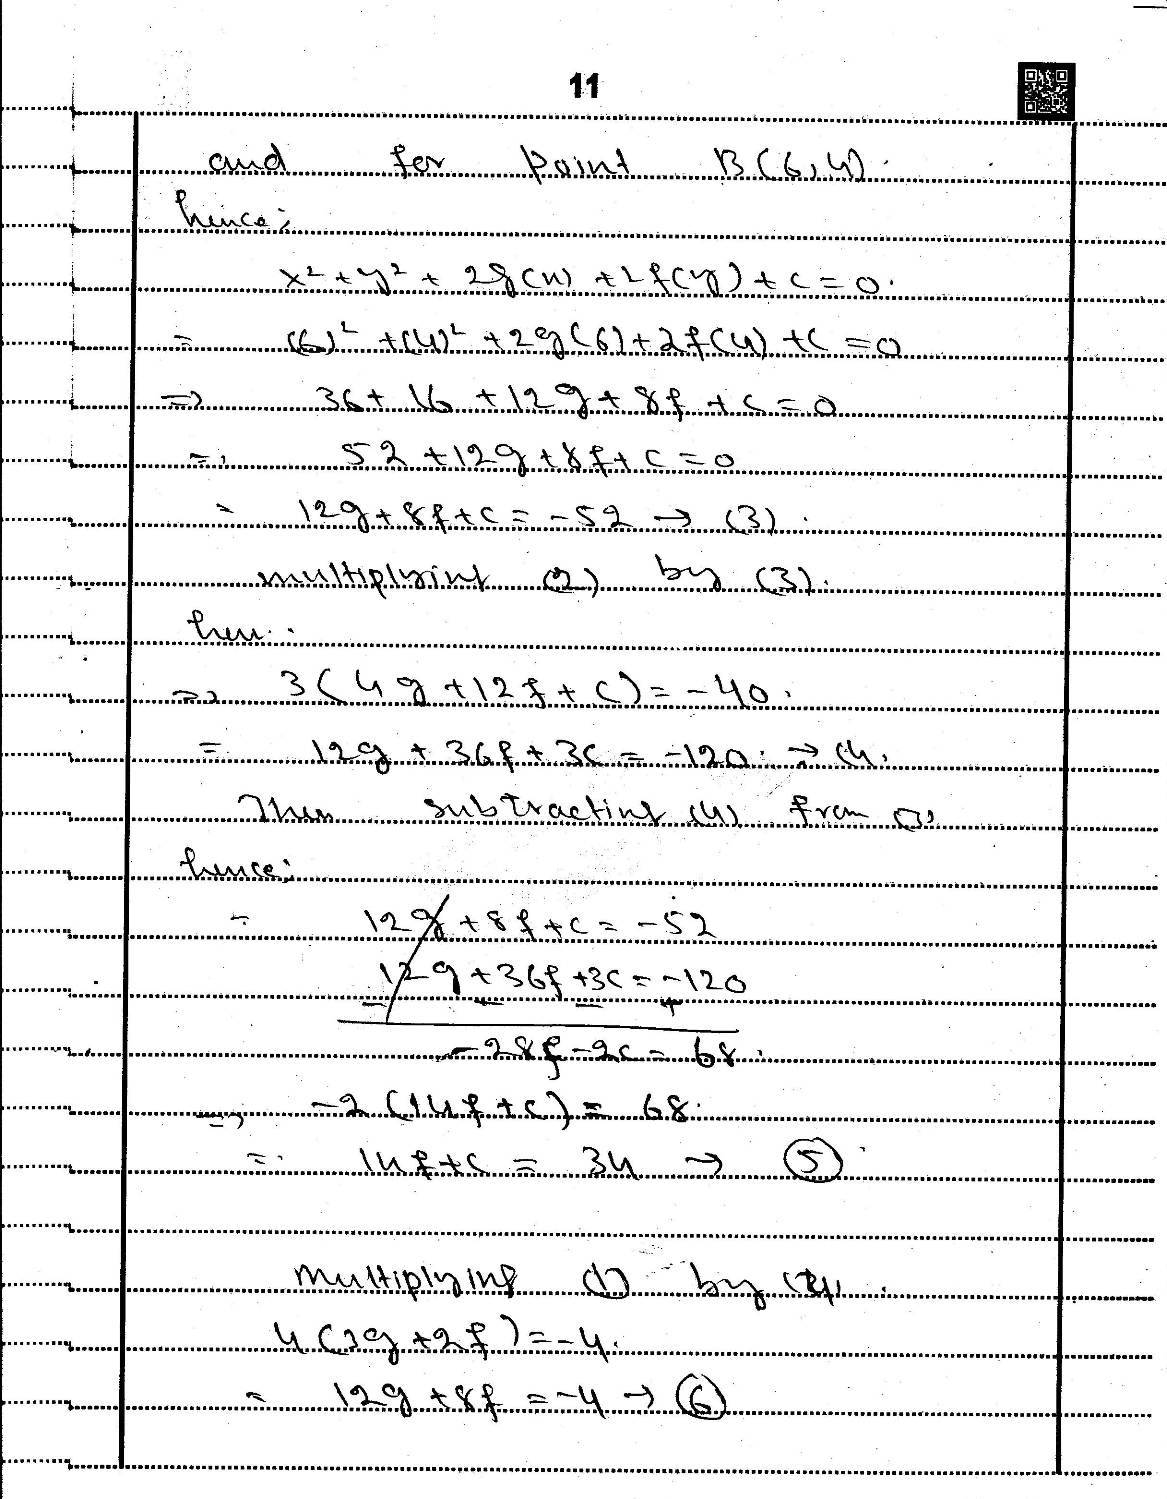 11
and for point B(6,4).
hence;
x² + y² + 2g(x) + 2f(y) + c = 0.
= (6)² + (4)² + 2g(6) + 2f(4) + c = 0
=> 36 + 16 + 12g + 8f + c = 0
=> 52 + 12g + 8f + c = 0
= 12g + 8f + c = -52 → (3).
multiplyint (2) by (3).
hen.
=> 3(4g + 12f + c) = -40.
= 12g + 36f + 3c = -120. → (4.
Then subtracting (4) from (3)
hence;
= 12g + 8f + c = -52
12g + 36f + 3c = -120
- - - +
-28f - 2c = 68.
=> -2(14f + c) = 68.
=. 14f + c = 34 → (5)
multiplying (1) by (4).
4(3g + 2f) = -4.
= 12g + 8f = -4 → (6)